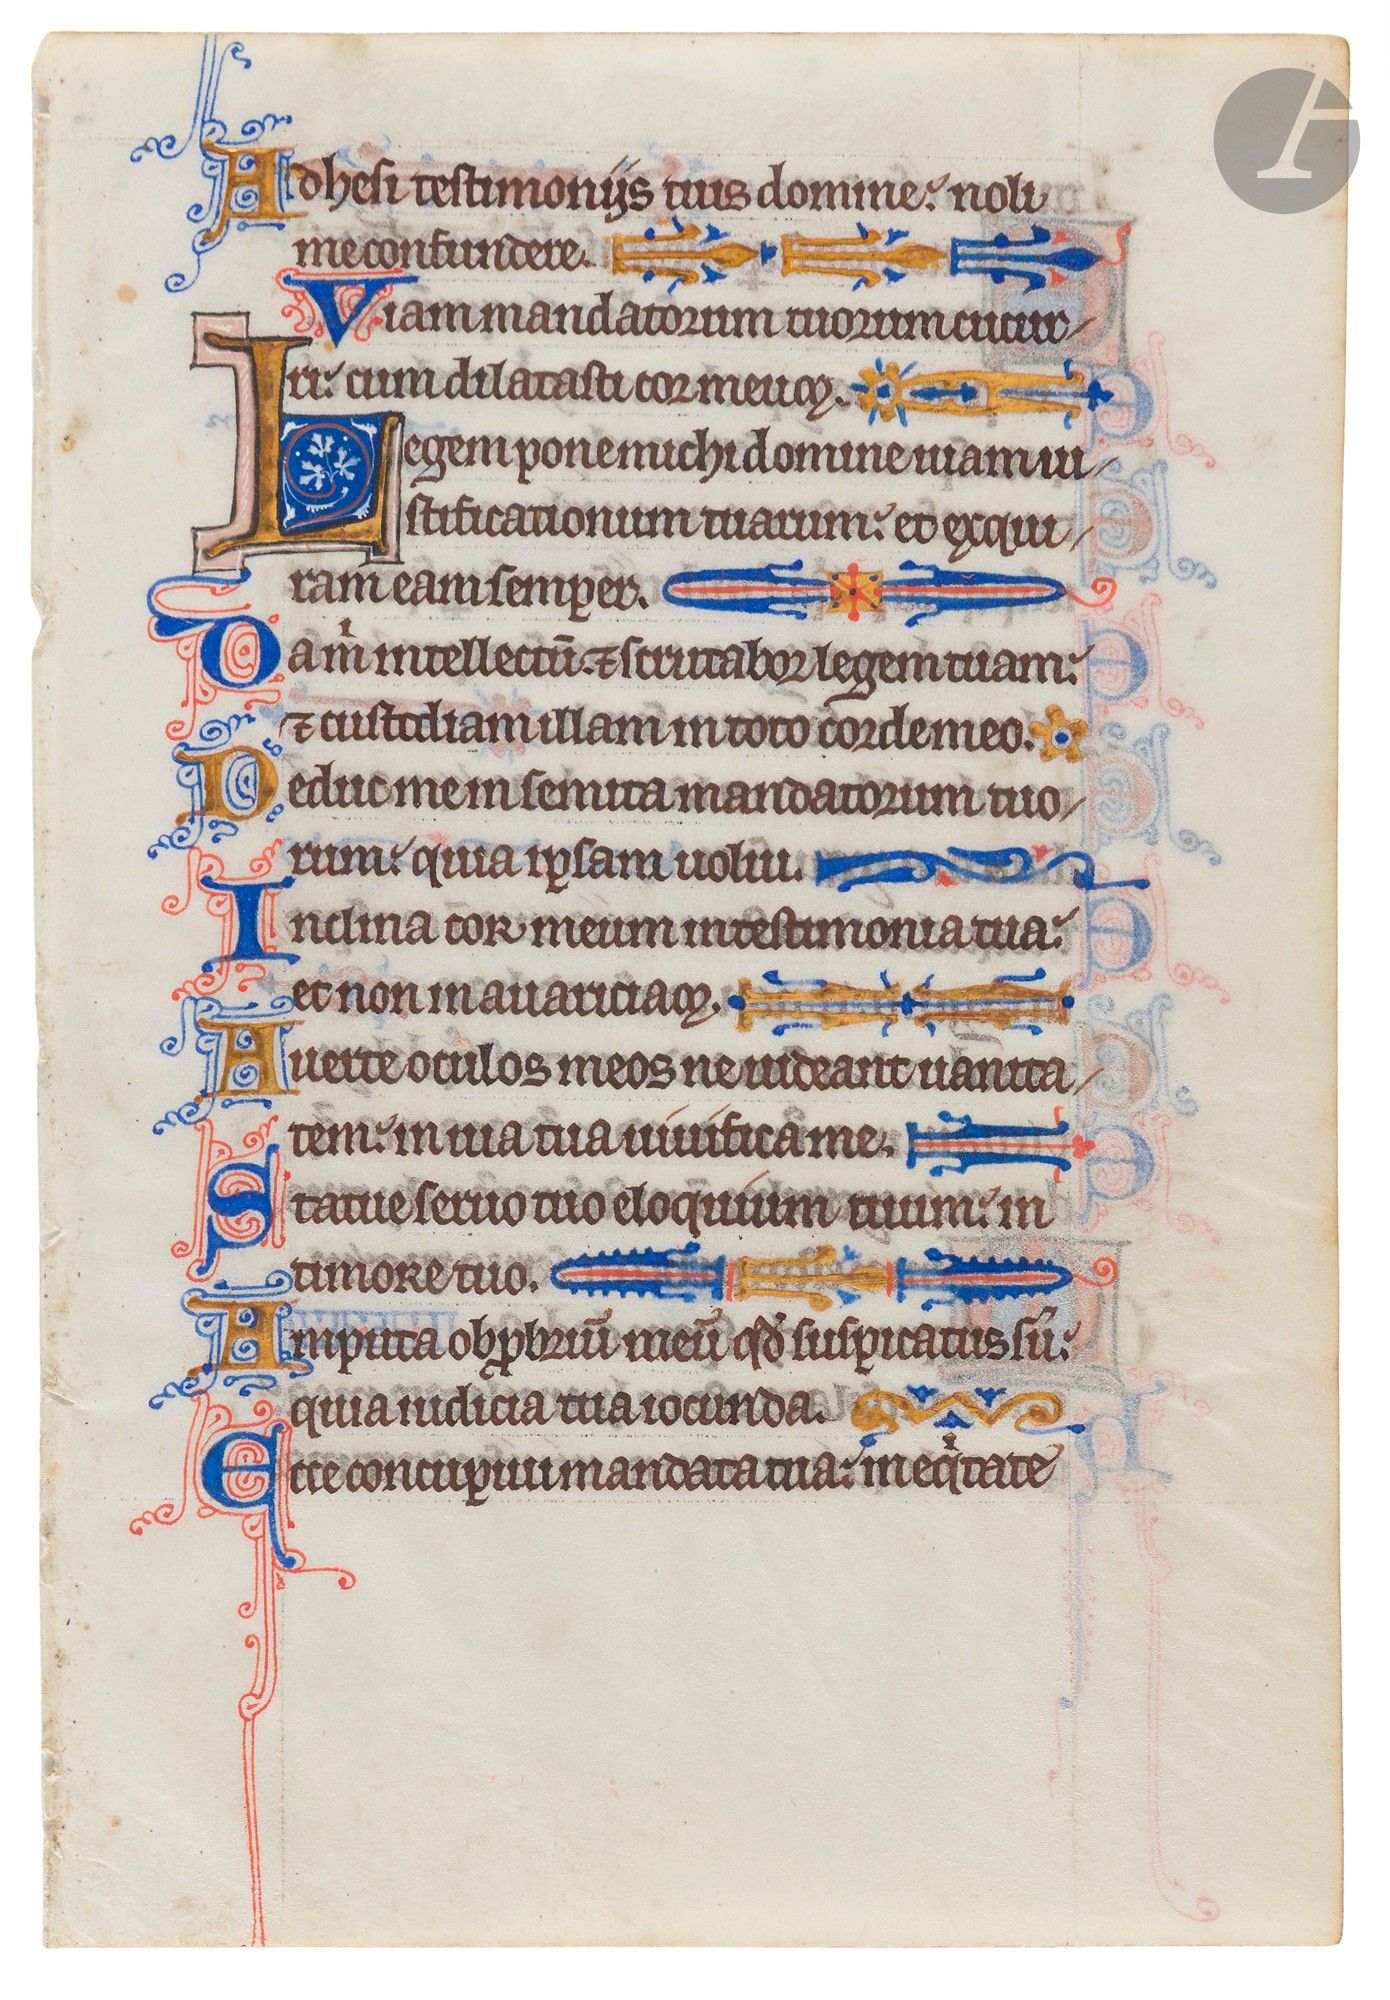 Adhesi testimonijs tuis domine: noli
me confundere.
Viam mandatorum tuorum cucur/
ri: cum dilatasti cor meum.
Legem pone michi domine uiam iu/
stificationum tuarum: et exqui/
ram eam semper.
Da mͥ intellectū. ⁊ scrutabor legem tuam:
⁊ custodiam illam in toto corde meo.
Deduc me in semita mandatorum tuo/
rum: quia ipsam uolui.
Inclina cor meum in testimonia tua:
et non in auariciam.
Auerte oculos meos ne uideant uanita/
tem: in uia tua uiuifica me.
Statue seruo tuo eloquium tuum: in
timore tuo.
Amputa obꝓbriū meū qđ suspicatus sū:
quia iudicia tua iocunda.
Ecce concupiui mandata tua: in eqͥtate